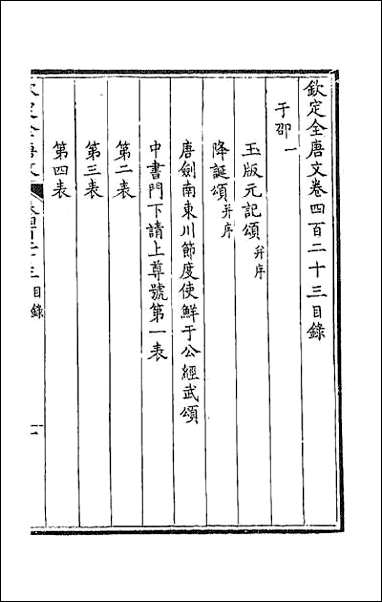 欽定全唐文卷四百二十三目錄
于邵一
玉版元記頌并序
降誕頌并序
唐劍南東川節度使鮮于公經武頌
中書門下請上尊號第一表
第二表
第三表
第四表
目錄